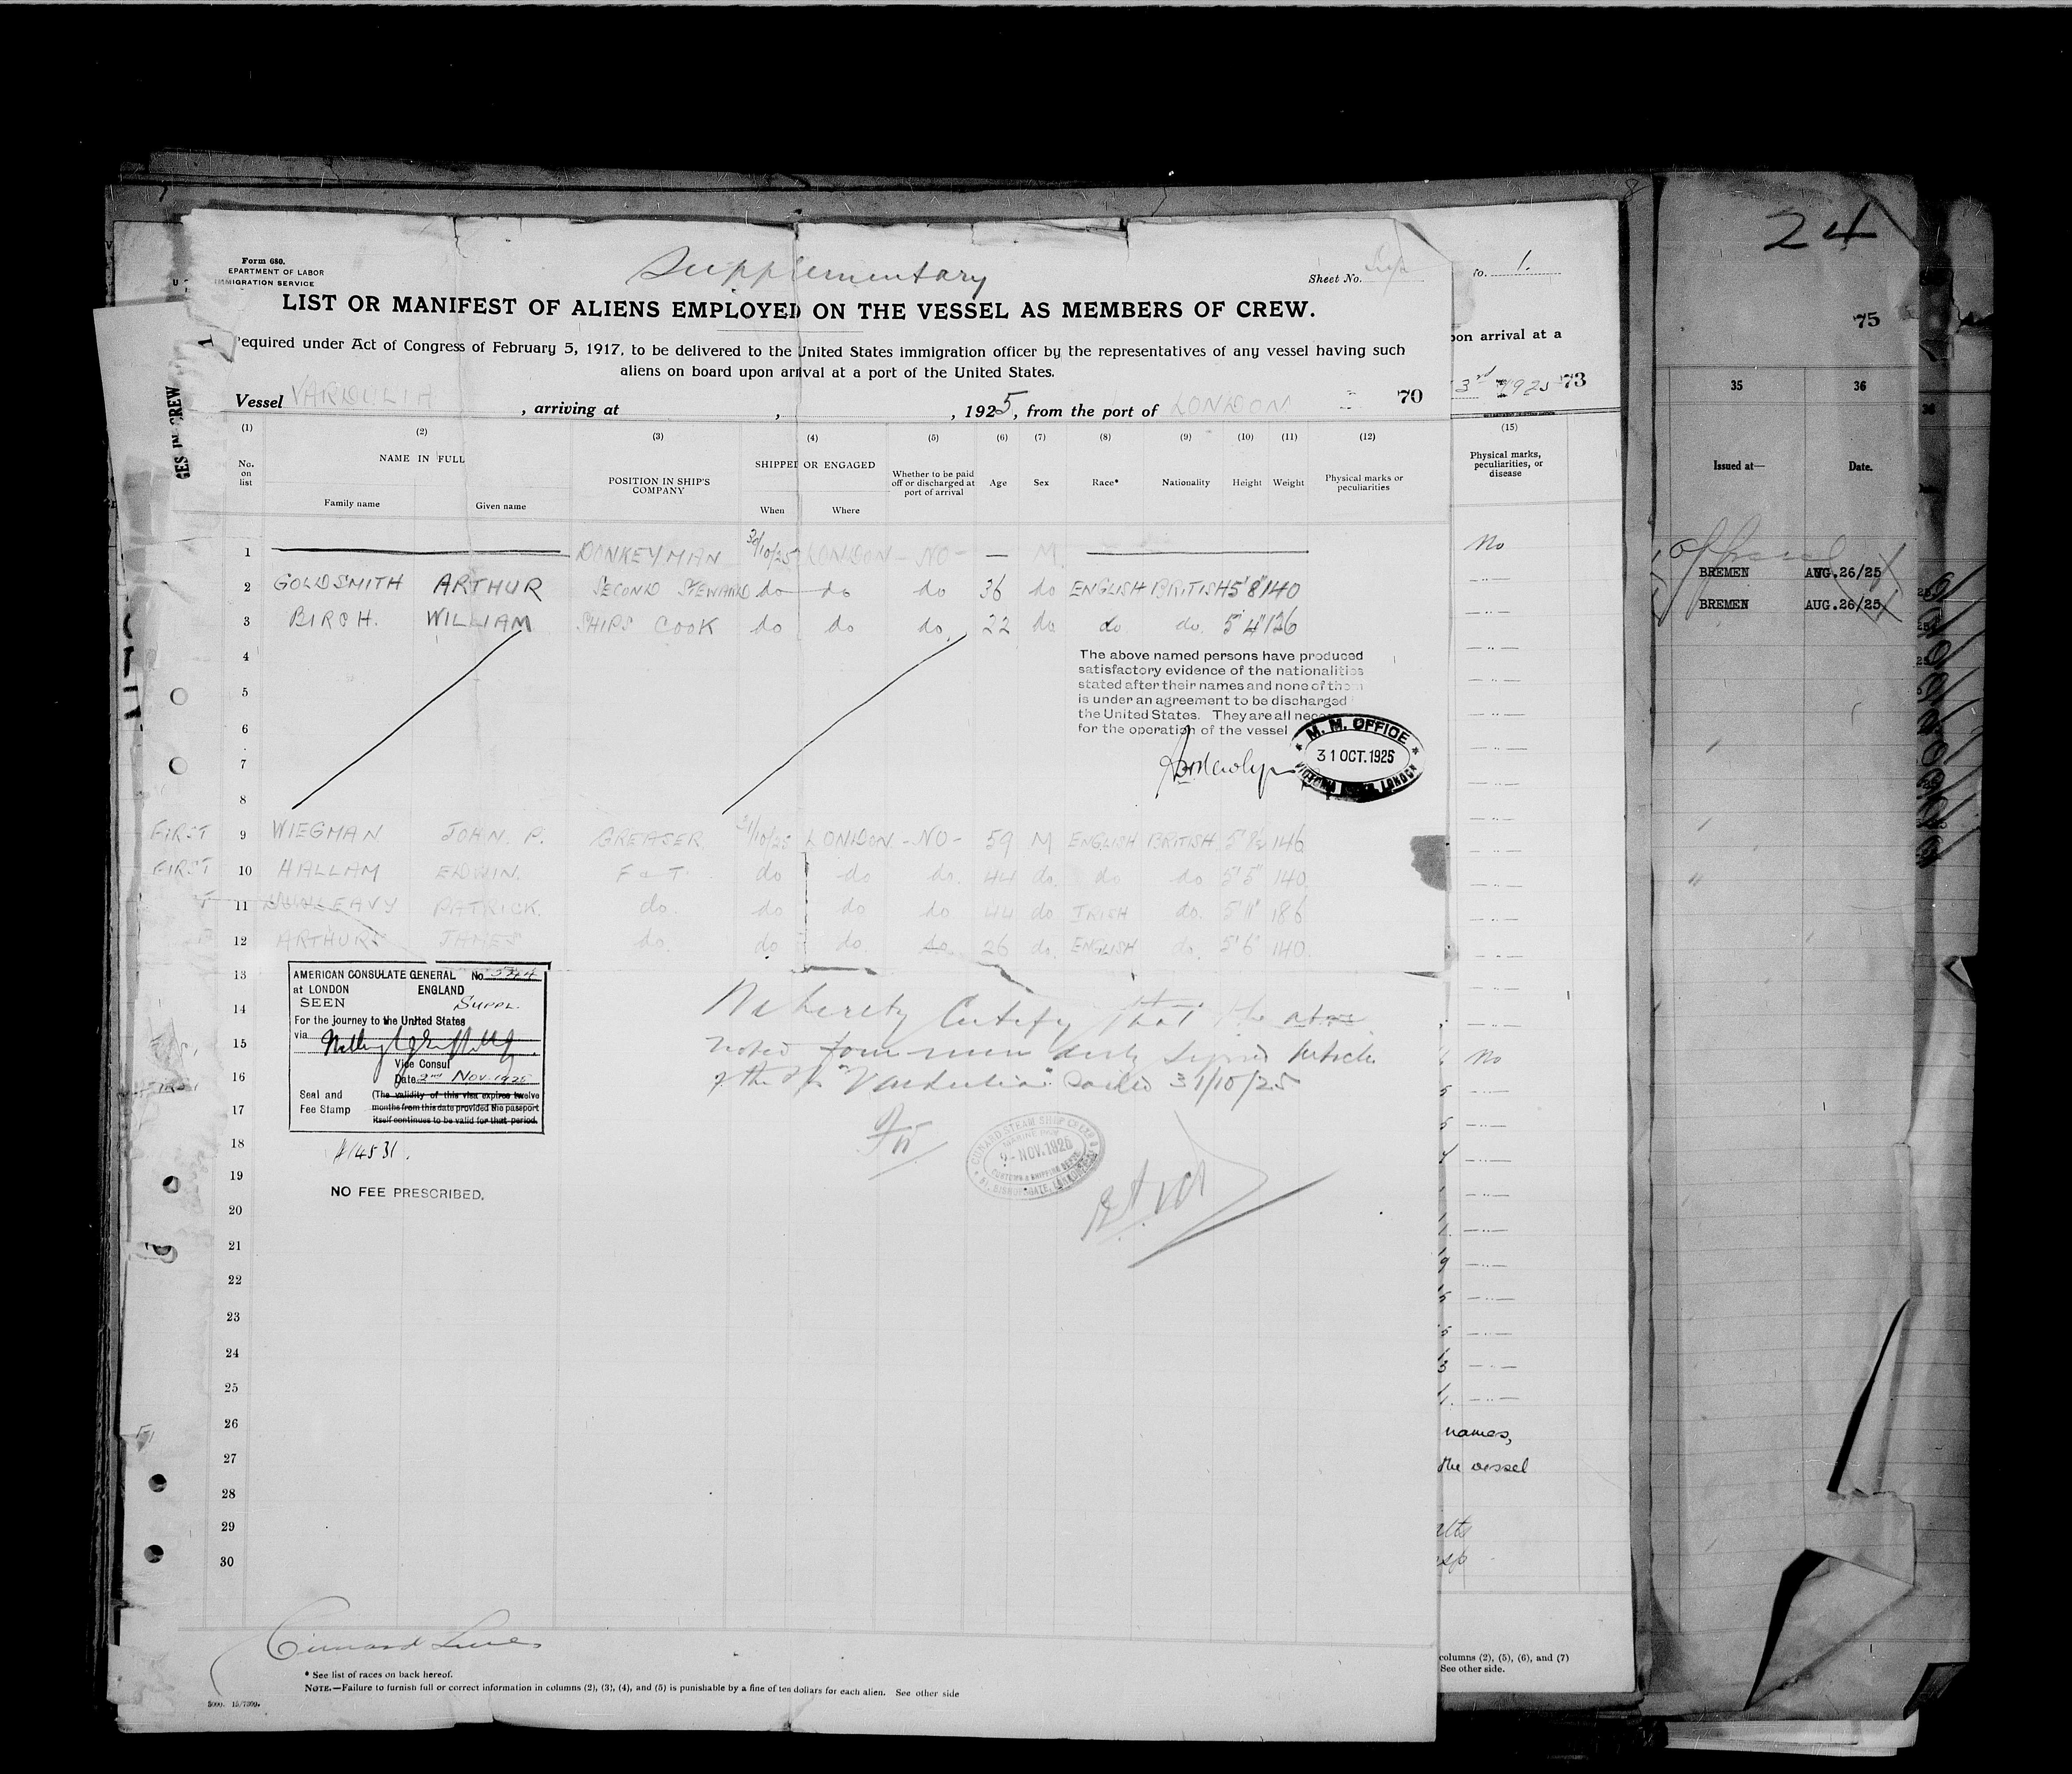 24
Supplementary
Form 680.
EPARTMENT OF LABOR
MMIGRATION SERVICE
Sheet No.
to. 1.
LIST OR MANIFEST OF ALIENS EMPLOYED ON THE VESSEL AS MEMBERS OF CREW.
75
equired under Act of Congress of February 5, 1917, to be delivered to the United States immigration officer by the representatives of any vessel having such
aliens on board upon arrival at a port of the United States.
pon arrival at a
Vessel VARDULIA , arriving at , , 1925, from the port of LONDON 70
3rd 1925 73
GES IN CREW
(1) (2) (3) (4) (5) (6) (7) (8) (9) (10) (11) (12) (15)
35 36
No. on list
NAME IN FULL
Family name Given name
POSITION IN SHIP'S COMPANY
SHIPPED OR ENGAGED
When Where
Whether to be paid off or discharged at port of arrival
Age Sex Race* Nationality Height Weight
Physical marks or peculiarities
Physical marks, peculiarities, or disease
Issued at— Date.
1 DONKEYMAN 30/10/25 LONDON - NO - — M
No
2 GOLDSMITH ARTHUR SECOND STEWARD do do do 36 do ENGLISH BRITISH 5'8" 140
BREMEN AUG.26/25
3 BIRCH. WILLIAM SHIPS COOK do do do. 22 do do do. 5'4" 126
BREMEN AUG.26/25
4
5
6
7
8
The above named persons have produced
satisfactory evidence of the nationalities
stated after their names and none of them
is under an agreement to be discharged
the United States. They are all nece
for the operation of the vessel
M. M. OFFICE
31 OCT. 1925
LONDON
FIRST 9 WIEGMAN JOHN. P. GREASER. 31/10/25 LONDON - NO - 59 M ENGLISH BRITISH 5' 8½ 146
FIRST 10 HALLAM EDWIN. F & T. do do do. 44 do. do do 5'5" 140
11 DUNLEAVY PATRICK. do. do do do 44 do IRISH do. 5'11" 186
12 ARTHURS JAMES do. do do. do. 26 do. ENGLISH do. 5'6" 140
13
14
15
16
17
18
19
20
21
22
23
24
25
26
27
28
29
30
AMERICAN CONSULATE GENERAL No.
at LONDON ENGLAND
SEEN SUPPL.
For the journey to the United States
via
Vice Consul
Date 2nd Nov. 1925
Seal and (The validity of this visa expires twelve
Fee Stamp months from this date provided the passport
itself continues to be valid for that period.
#14531.
NO FEE PRESCRIBED.
We hereby Certify that the above
noted four men duly signed Article
of the "Vardulia" Sailed 31/10/25
CUNARD STEAM SHIP CO LTD
2- NOV. 1925
BISHOPSGATE, LONDON
No
names,
the vessel
Cunard Lines
* See list of races on back hereof.
NOTE.—Failure to furnish full or correct information in columns (2), (3), (4), and (5) is punishable by a fine of ten dollars for each alien. See other side
columns (2), (5), (6), and (7)
See other side.